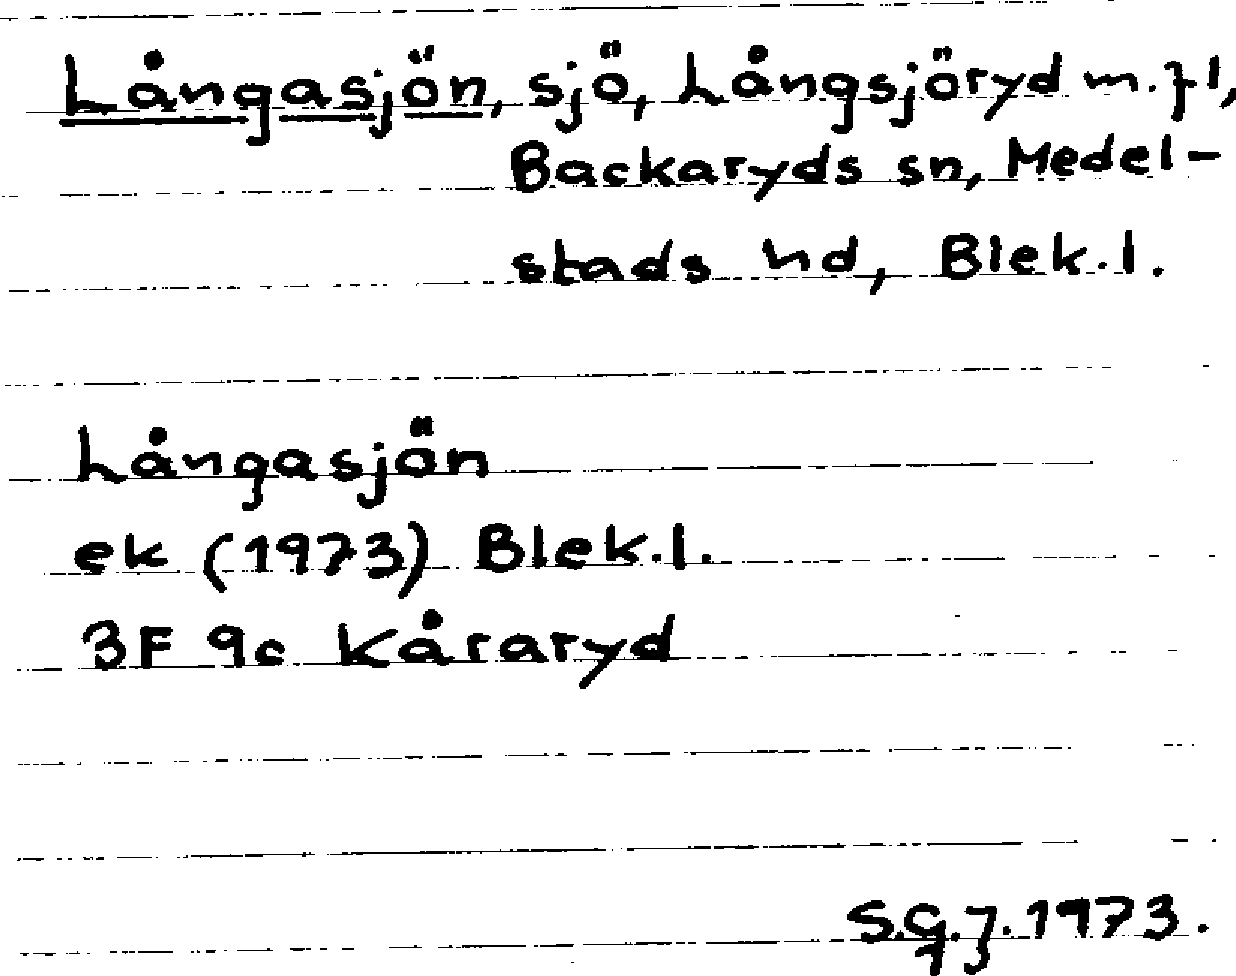 Långasjön, sjö, Långsjöryd m.fl,
Backaryds sn, Medel-
stads hd, Blek.l.
Långasjön
ek (1973) Blek.l.
3F 9c Kåraryd
S.G.J. 1973.